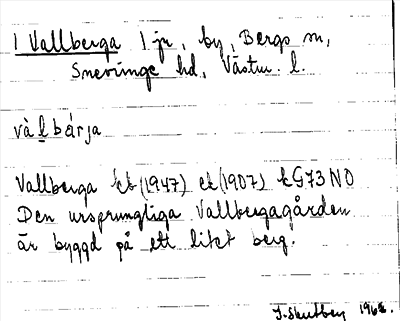 1 Vallberga 1 jr, by, Bergs sn,
Snevringe hd, Västm. l.
vàl̲bárja
Vallberga kb (1947) ek (1907) k G73 NO
Den ursprungliga Vallbergagården
är byggd på ett litet berg.